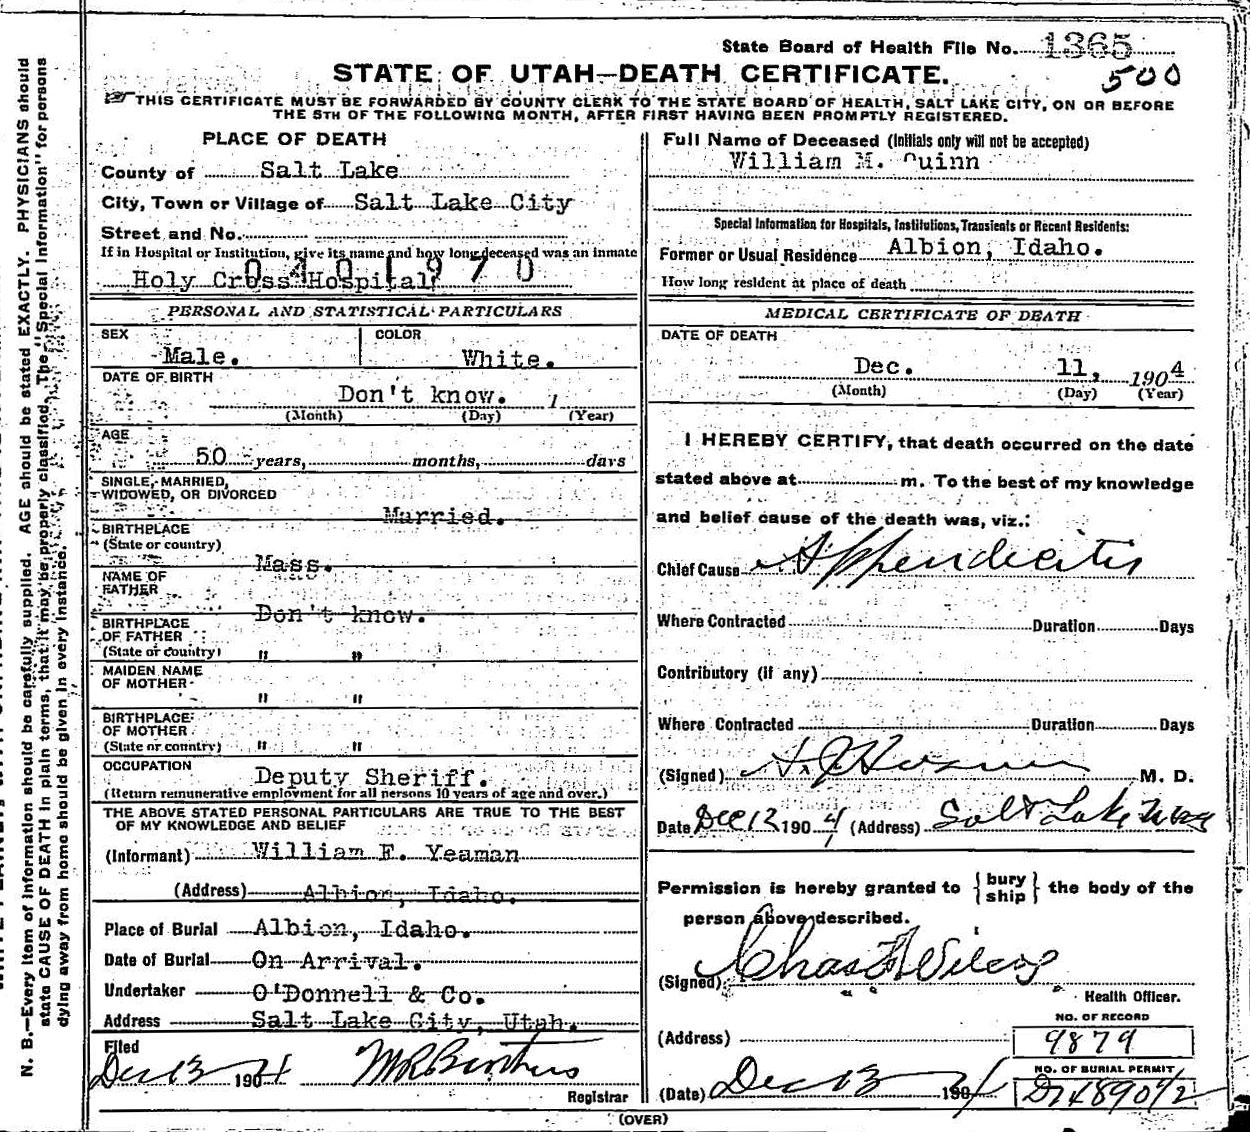 State Board of Health File No. 1365
500
STATE OF UTAH—DEATH CERTIFICATE.
THIS CERTIFICATE MUST BE FORWARDED BY COUNTY CLERK TO THE STATE BOARD OF HEALTH, SALT LAKE CITY, ON OR BEFORE
THE 5TH OF THE FOLLOWING MONTH, AFTER FIRST HAVING BEEN PROMPTLY REGISTERED.
PLACE OF DEATH
County of Salt Lake
City, Town or Village of Salt Lake City
Street and No.
If in Hospital or Institution, give its name and how long deceased was an inmate
0401970
Holy Cross Hospital
PERSONAL AND STATISTICAL PARTICULARS
SEX COLOR
Male. White.
DATE OF BIRTH
Don't know. 1
(Month) (Day) (Year)
AGE
50 years, months, days
SINGLE, MARRIED,
WIDOWED, OR DIVORCED
Married.
BIRTHPLACE
(State or country)
Mass.
NAME OF
FATHER
Don't know.
BIRTHPLACE
OF FATHER
(State or country) " "
MAIDEN NAME
OF MOTHER
" "
BIRTHPLACE
OF MOTHER
(State or country) " "
OCCUPATION
Deputy Sheriff.
(Return remunerative employment for all persons 10 years of age and over.)
THE ABOVE STATED PERSONAL PARTICULARS ARE TRUE TO THE BEST
OF MY KNOWLEDGE AND BELIEF
(Informant) William F. Yeaman
(Address) Albion, Idaho.
Place of Burial Albion, Idaho.
Date of Burial On Arrival.
Undertaker O'Donnell & Co.
Address Salt Lake City, Utah.
Filed
Dec 13 1904
Registrar
Full Name of Deceased (Initials only will not be accepted)
William M. Quinn
Special Information for Hospitals, Institutions, Transients or Recent Residents:
Former or Usual Residence Albion, Idaho.
How long resident at place of death
MEDICAL CERTIFICATE OF DEATH
DATE OF DEATH
Dec. 11, 1904
(Month) (Day) (Year)
I HEREBY CERTIFY, that death occurred on the date
stated above at m. To the best of my knowledge
and belief cause of the death was, viz.:
Chief Cause Appendicitis
Where Contracted Duration Days
Contributory (if any)
Where Contracted Duration Days
(Signed) M. D.
Date Dec 12 1904 (Address) Salt Lake
Permission is hereby granted to {bury ship} the body of the
person above described.
(Signed) Chas F Wilcox
Health Officer.
NO. OF RECORD
(Address) 9879
NO. OF BURIAL PERMIT
(Date) Dec 13 1904
(OVER)
N. B.—Every item of information should be carefully supplied. AGE should be stated EXACTLY. PHYSICIANS should
state CAUSE OF DEATH in plain terms, that it may be properly classified. The "Special Information" for persons
dying away from home should be given in every instance.